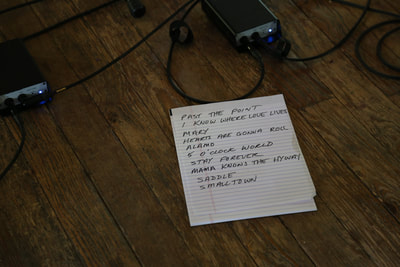 PAST THE POINT
I KNOW WHERE LOVE LIVES
MARY
HEARTS ARE GONNA ROLL
ALAMO
5 O'CLOCK WORLD
STAY FOREVER
MAMA KNOWS THE HYWAY
SADDLE
SMALLTOWN